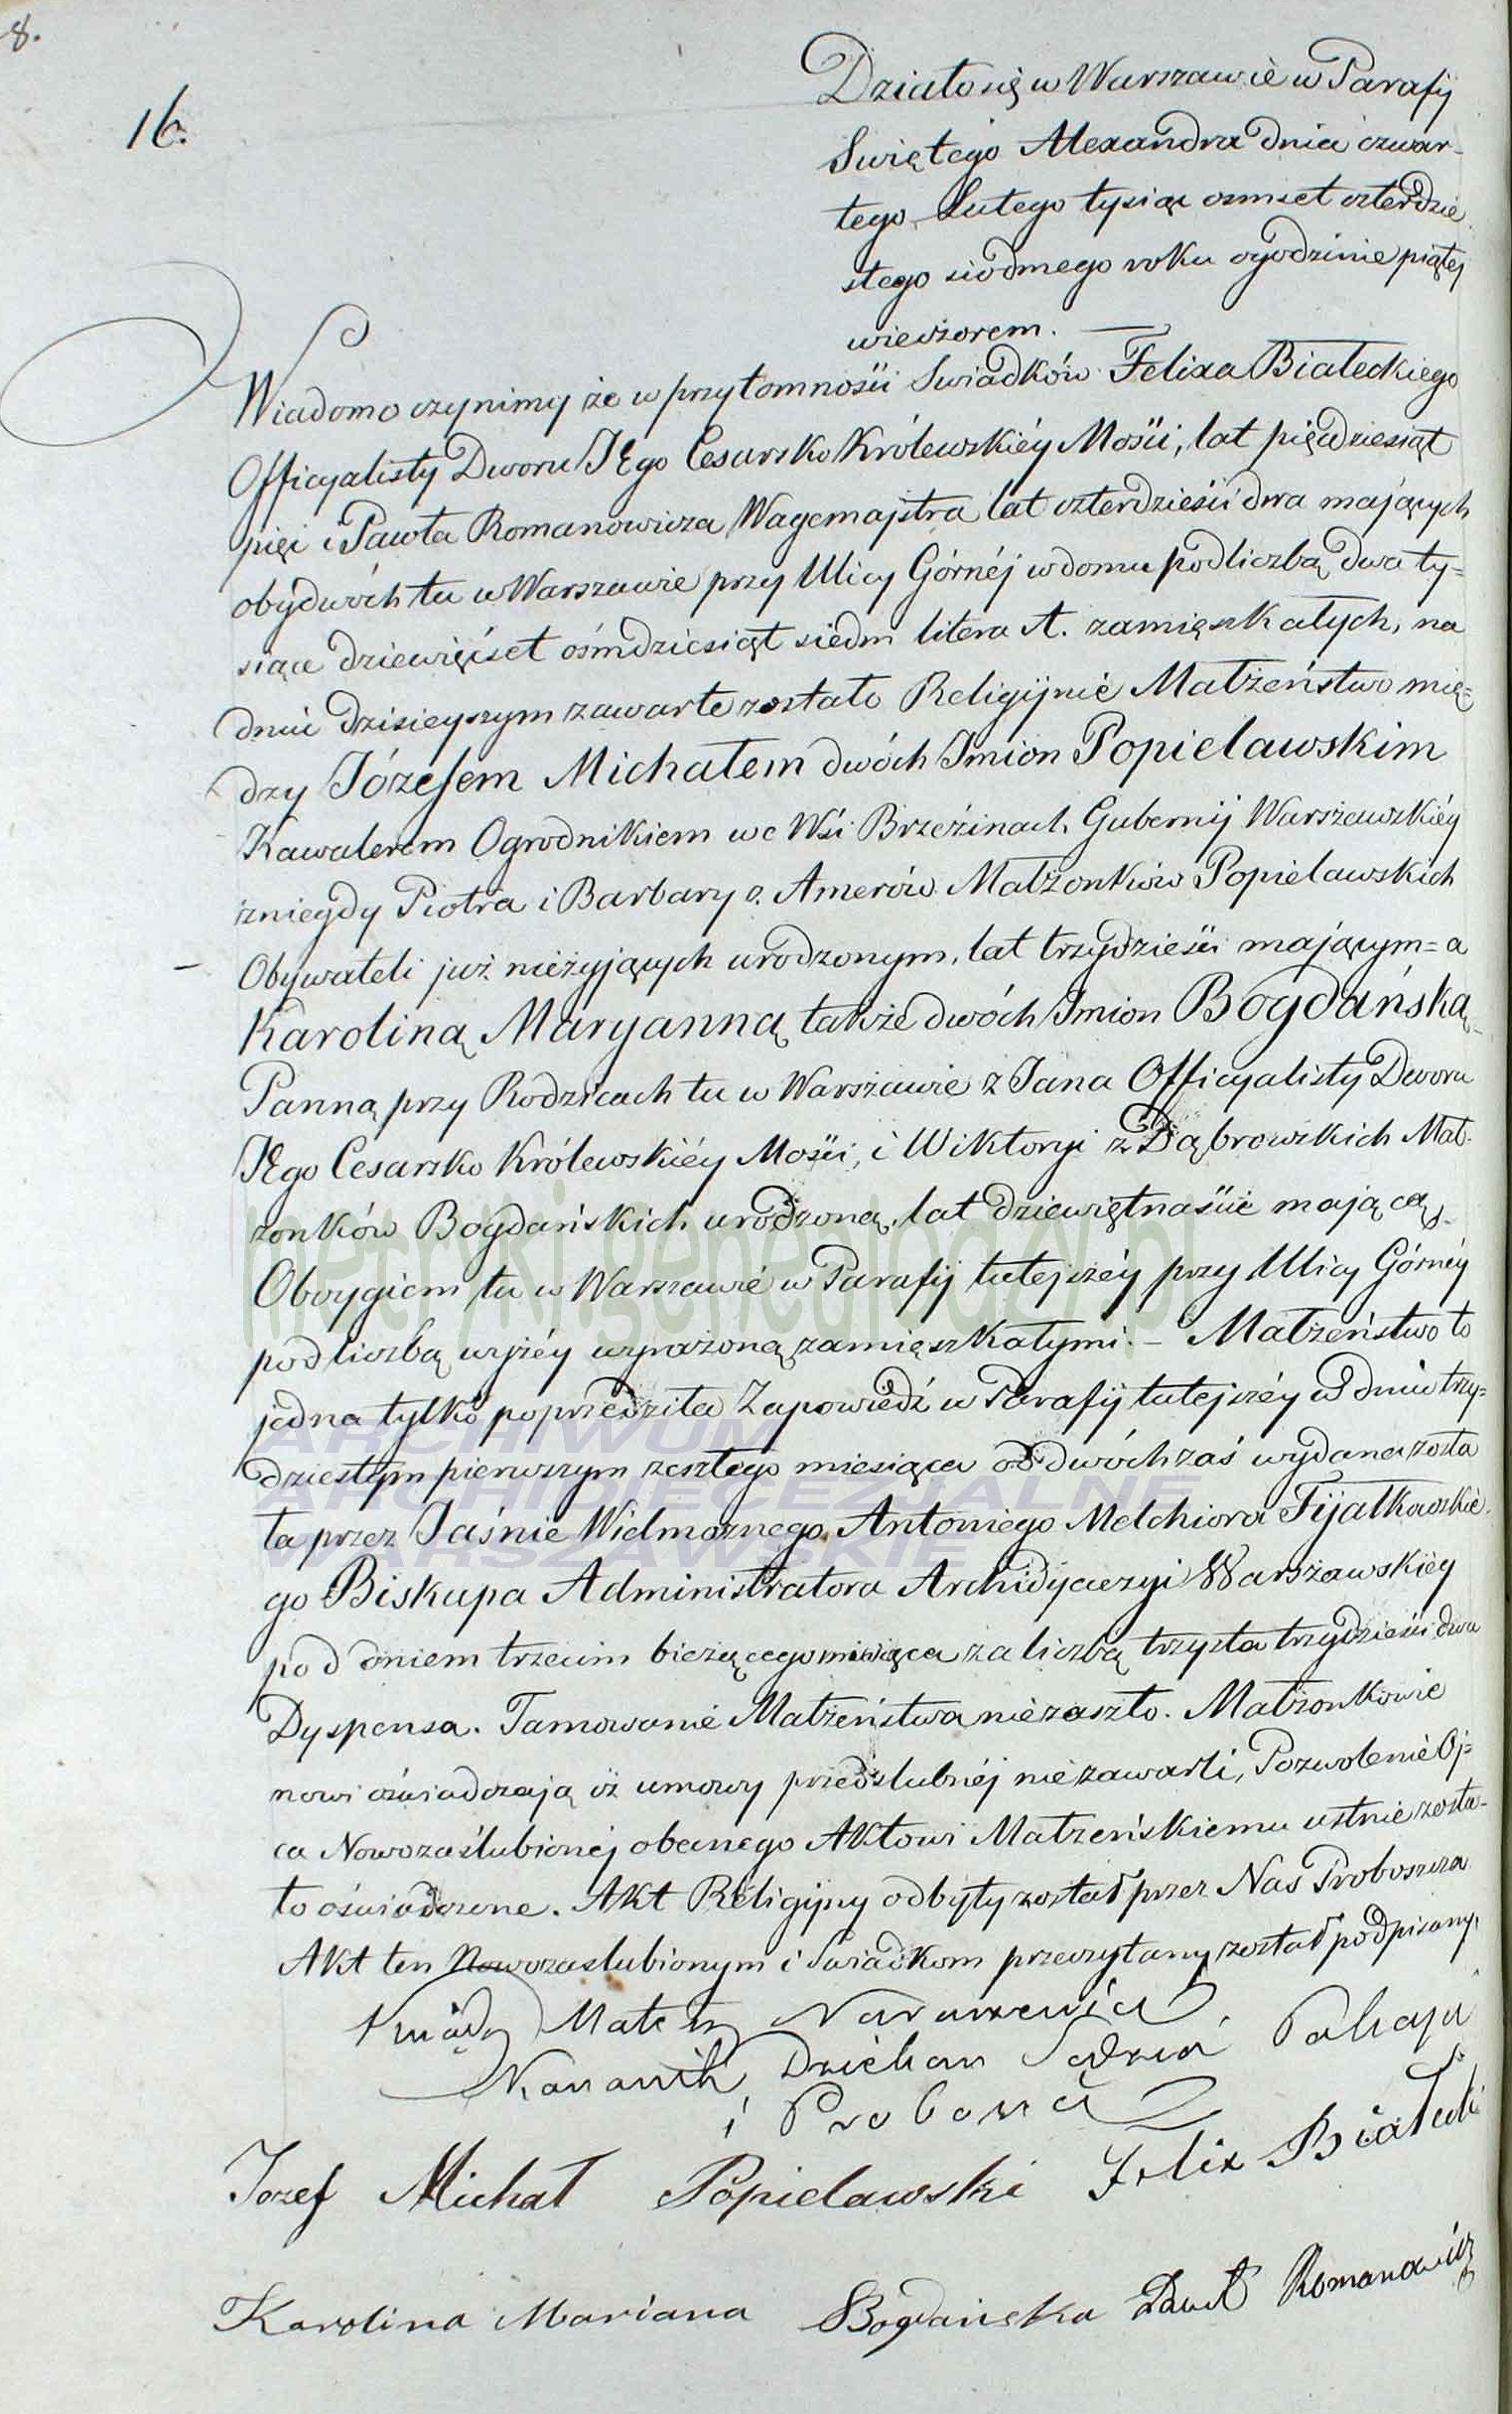 8.
16.
Działo się w Warszawie w Parafij
Swiętego Alexandra dnia czwar-
tego Lutego tysiąc osmset czterdzie
stego siodmego roku ogodzinie piątej
wieczorem. —
Wiadomo czynimy że w przytomności Swiadków Felixa Białeckiego
Officyalisty Dworu JEgo Cesarsko Królewskiéy Mości, lat pięćdziesiąt
pięć i Pawła Romanowicza Wagemajstra lat czterdzieści dwa mających
obydwóch tu w Warszawie przy Ulicy Górnéj w domu pod liczbą dwa ty=
siące dziewięćset ośmdziesiąt siedm litera A. zamięszkałych, na
dniu dzisieyszym zawarte zostało Religijnie Małżeństwo mię=
dzy Józefem Michałem dwóch Imion Popielawskim
Kawalerem Ogrodnikiem we Wsi Brzezinach Gubernij Warszawskiéy
zniegdy Piotra i Barbary z Amerów Małżonków Popielawskich
Obywateli już nieżyjących urodzonym, lat trzydzieści mającym = a
Karoliną Maryanną także dwóch Imion Bogdańską
Panną przy Rodzicach tu w Warszawie z Jana Officyalisty Dworu
JEgo Cesarsko Królewskiéy Mości, i Wiktoryi z Dąbrowskich Mał-
żonków Bogdańskich urodzoną, lat dziewiętnaście mającą,
Obojgiem tu w Warszawie w Parafij tutejszéy przy Ulicy Górnéy
pod liczbą wyżéy wyrażoną zamięszkałymi. — Małżeństwo to
jedna tylko poprzedziła Zapowiedź w Parafij tutejszéy w dniu trzy=
dziestym pierwszym zeszłego miesiąca od dwóch zaś wydana zosta
ła przez Jaśnie Wielmożnego Antoniego Melchiora Fijałkowskie
go Biskupa Administratora Archidyecezyi Warszawskiéy
pod dniem trzecim bieżącego miesiąca za liczbą trzysta trzydzieści dwa
Dyspensa. Tamowanie Małżeństwa nie zaszło. Małżonkowie
nowi oświadczają iż umowy przedślubnéj nie zawarli, Pozwolenie Oj=
ca Nowozaślubionéj obecnego Aktowi Małżeńskiemu ustnie zosta-
ło oświadczone. Akt Religijny odbyty został przez Nas Proboszcza
Akt ten Nowozaslubionym i Swiadkom przeczytany został podpisany.
Ksiądz Mateusz Naruszewicz
Kanonik Dziekan Sędzia Pokoju
i Proboszcz
Jozef Michał Popielawski Felix Białecki
Karolina Mariana Bogdańska Paweł Romanowicz
metryki.genealodzy.pl
ARCHIWUM
ARCHIDIECEZJALNE
WARSZAWSKIE